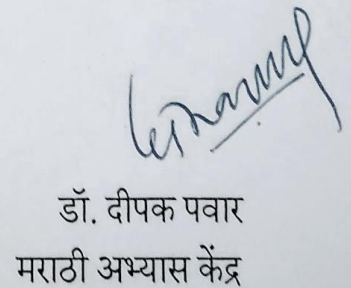 डॉ. दीपक पवार
मराठी अभ्यास केंद्र